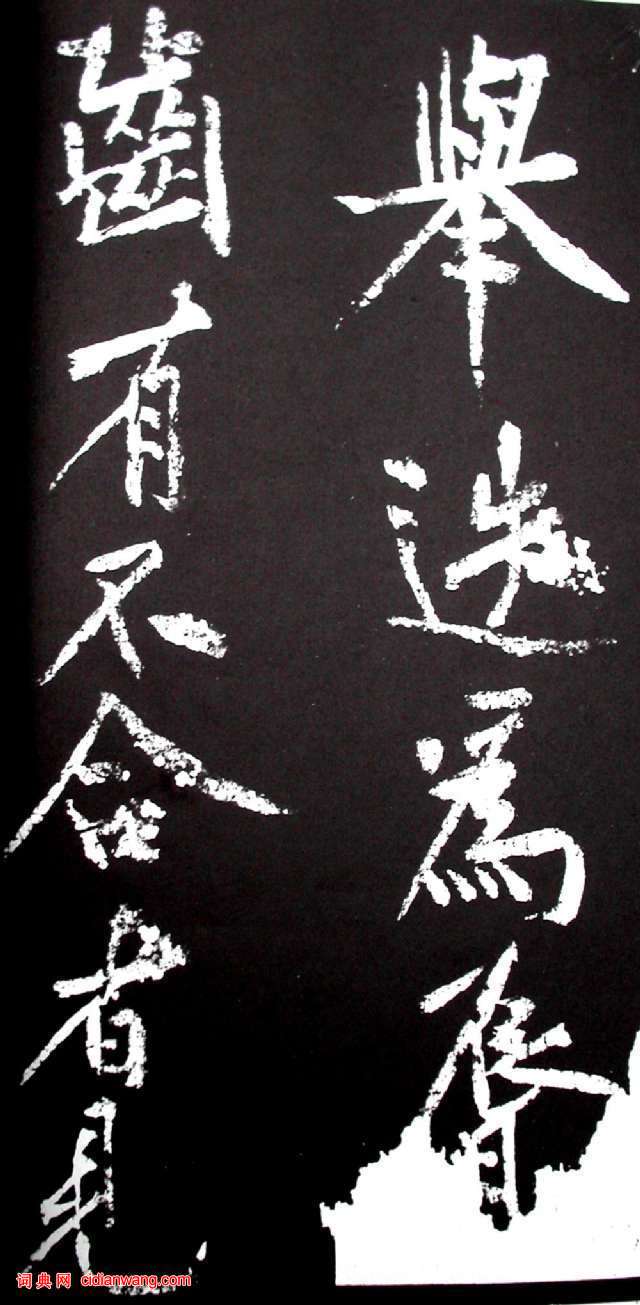 舉選為
齒有不合者見
词典网 cidianwang.com